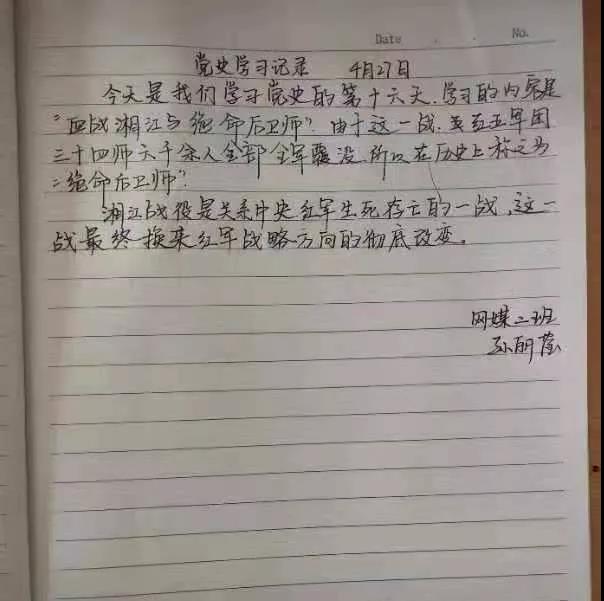 Date . . No.
党史学习记录 4月27日
今天是我们学习党史的第十六天.学习的内容是
"血战湘江与绝命后卫师".由于这一战,红五军团
三十四师六千余人全部全军覆没,所以在历史上称之为
"绝命后卫师".
湘江战役是关系中央红军生死存亡的一战,这一
战最终换来红军战略方向的彻底改变。
网媒二班
孙丽莹